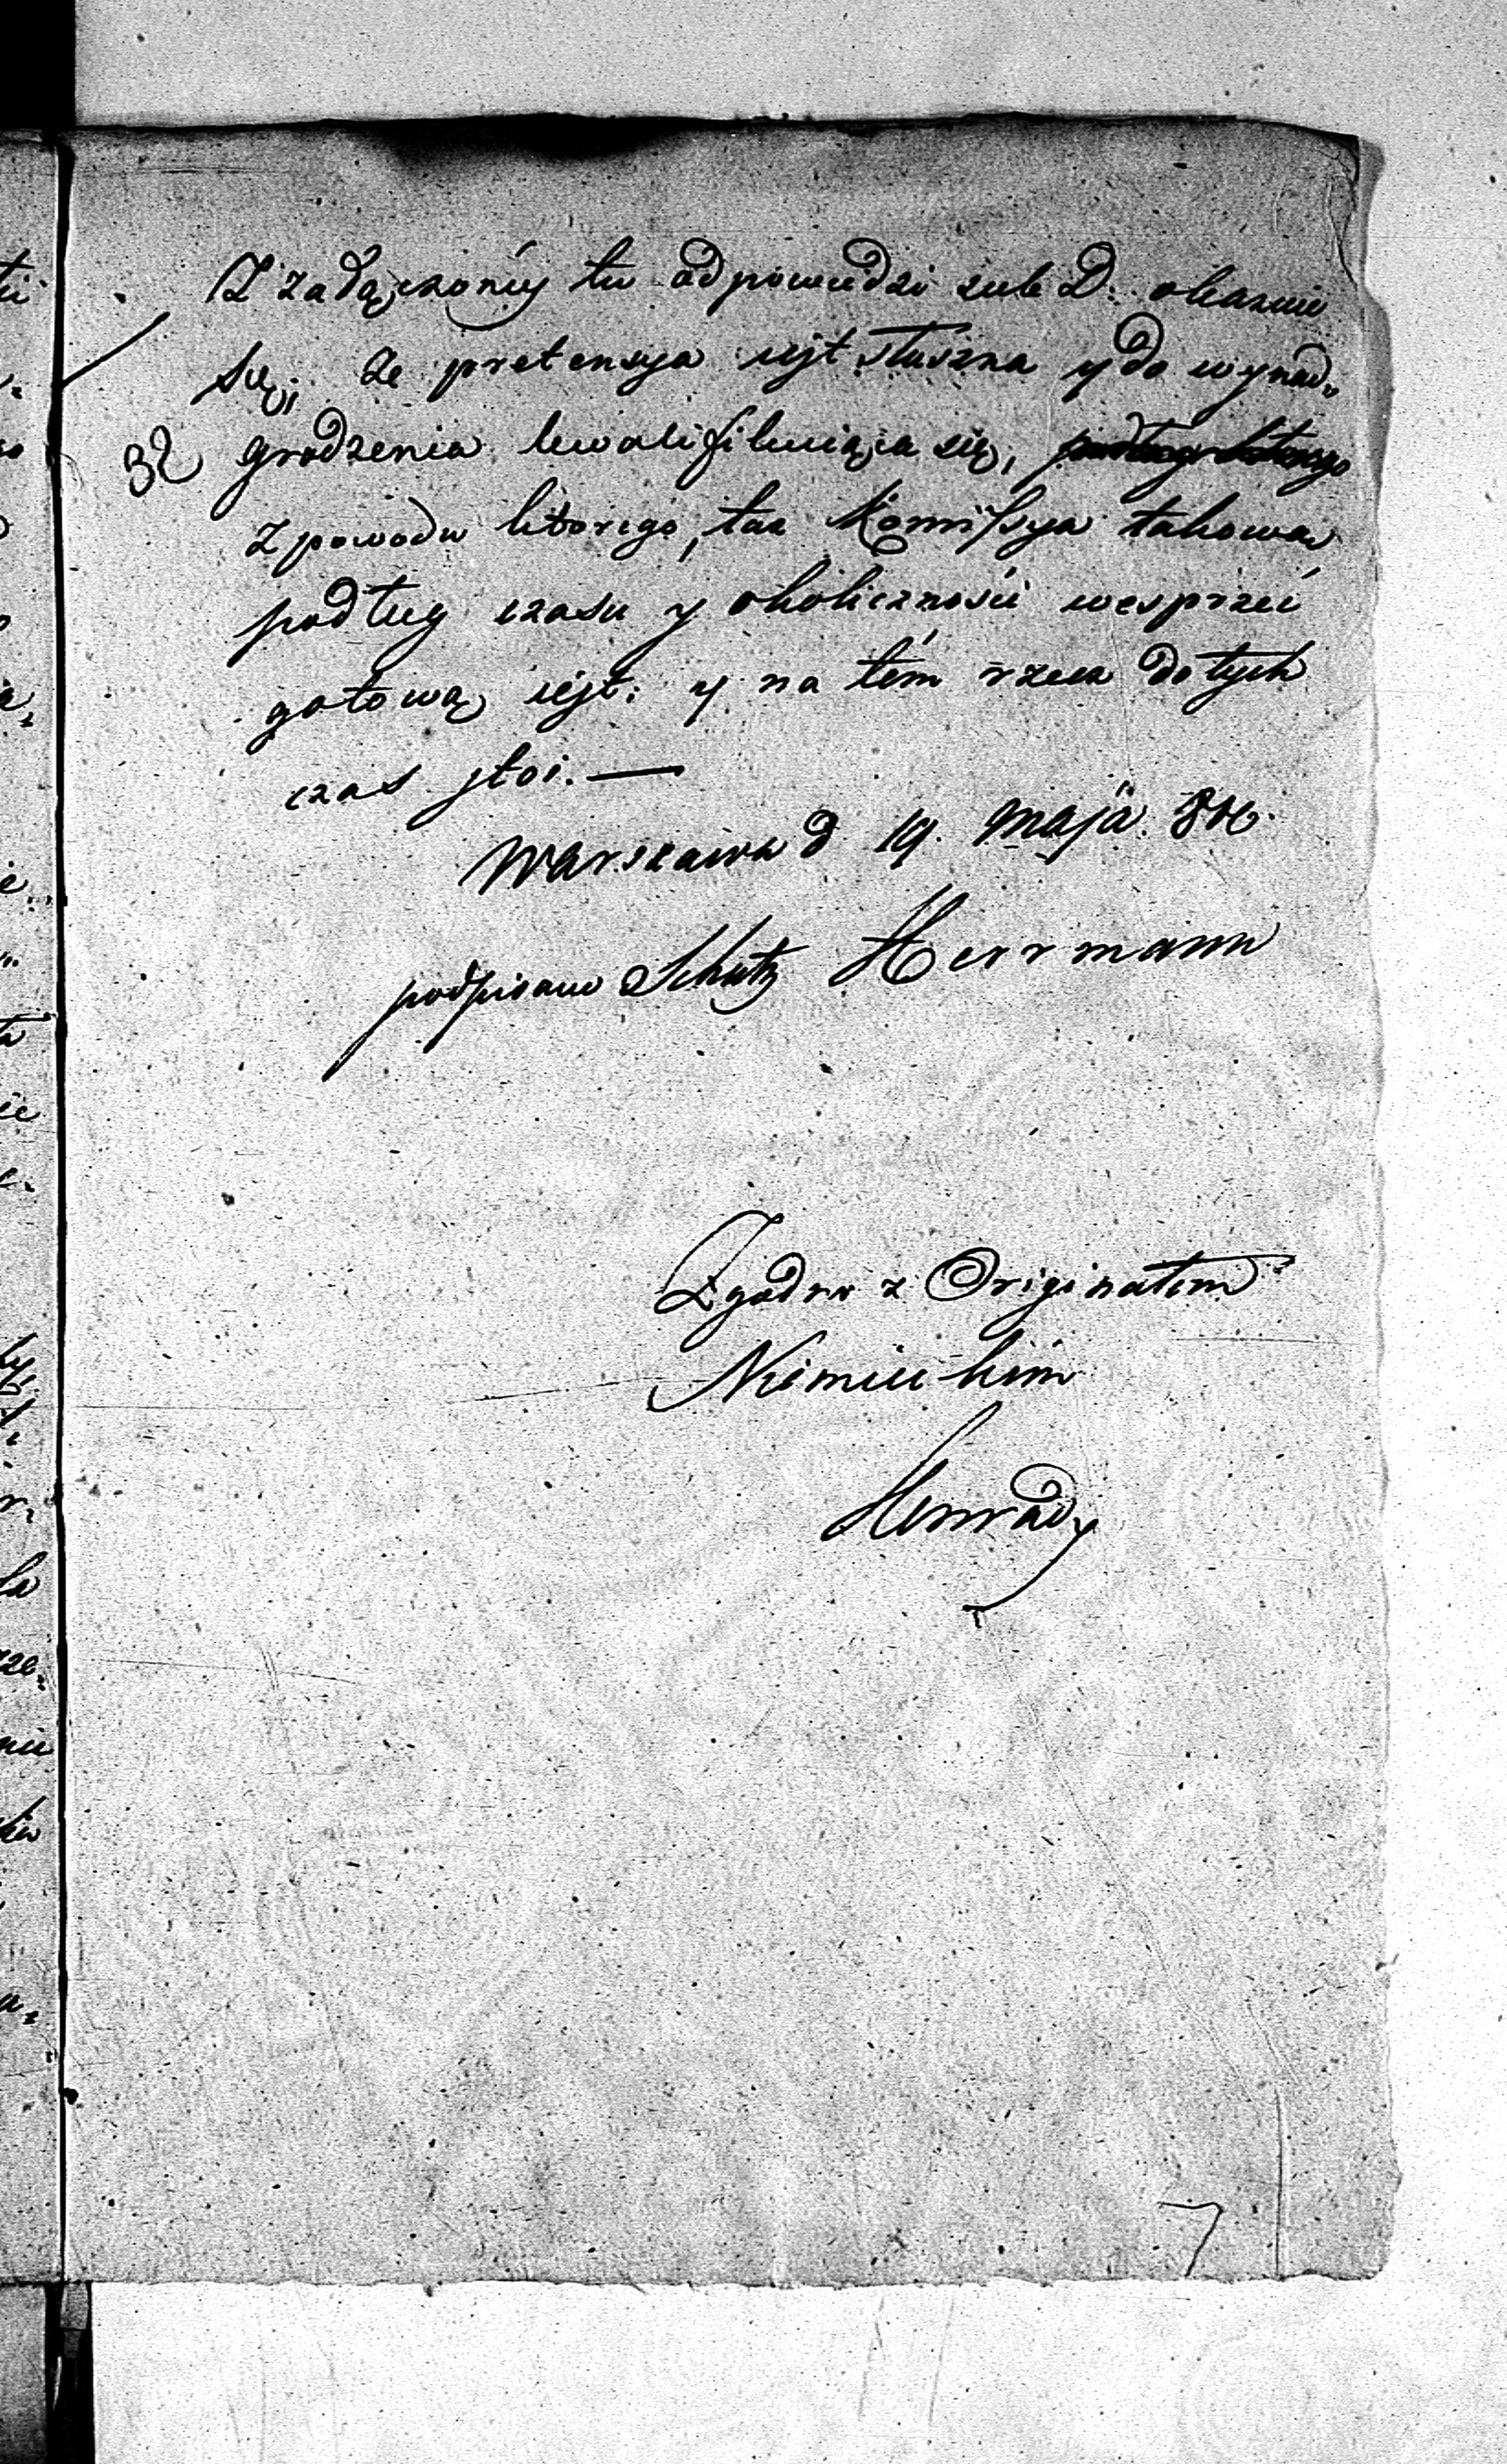 Z załączonéy tu odpowiedzi sub D. okazuie
się, że pretensya iest słuszna y do wynad„
32 grodzenia kwalifikuiąca się,
z powodu którego, taż Kommissya takową
podług czasu y okoliczności wesprzeć
gotową iest; y na tém rzecz dotych
czas stoi. —
Warszawa d 19. Maja
podpisano Schutz Herrmann
Zgodno z Originałem
Niemieckim
Konrady
7